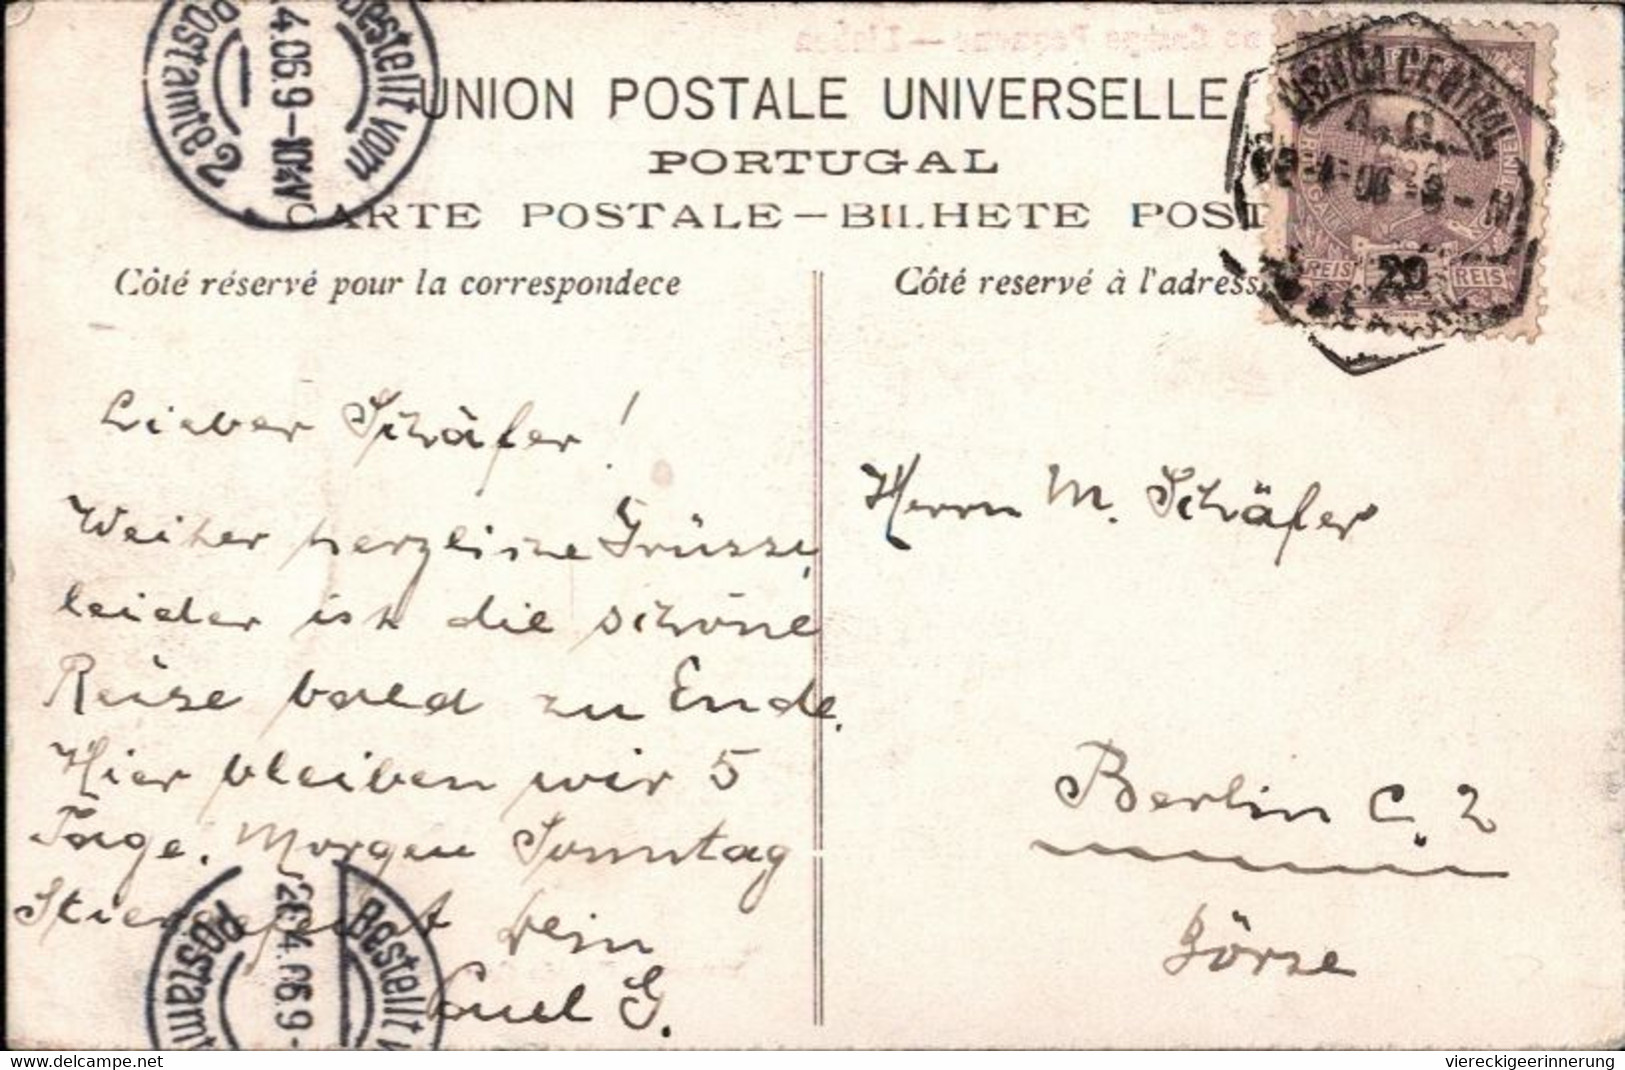 Bestellt vom
Postamte 2
.4.06.9-10¼V
UNION POSTALE UNIVERSELLE
PORTUGAL
CARTE POSTALE — BILHETE POST
Côté réservé pour la correspondece
Côté reservé à l'adress
LISBOA CENTRAL
REIS 20 REIS
Lieber Schäfer!
Weiter herzliche Grüsse,
leider ist die schöne
Reise bald zu Ende.
Hier bleiben wir 5
Tage. Morgen Sonntag
Stiergefecht Dein
G.
Herrn M. Schäfer
Berlin C. 2
Börse
Bestellt
Postamt
26.4.06.9-
viereckigeerinnerung